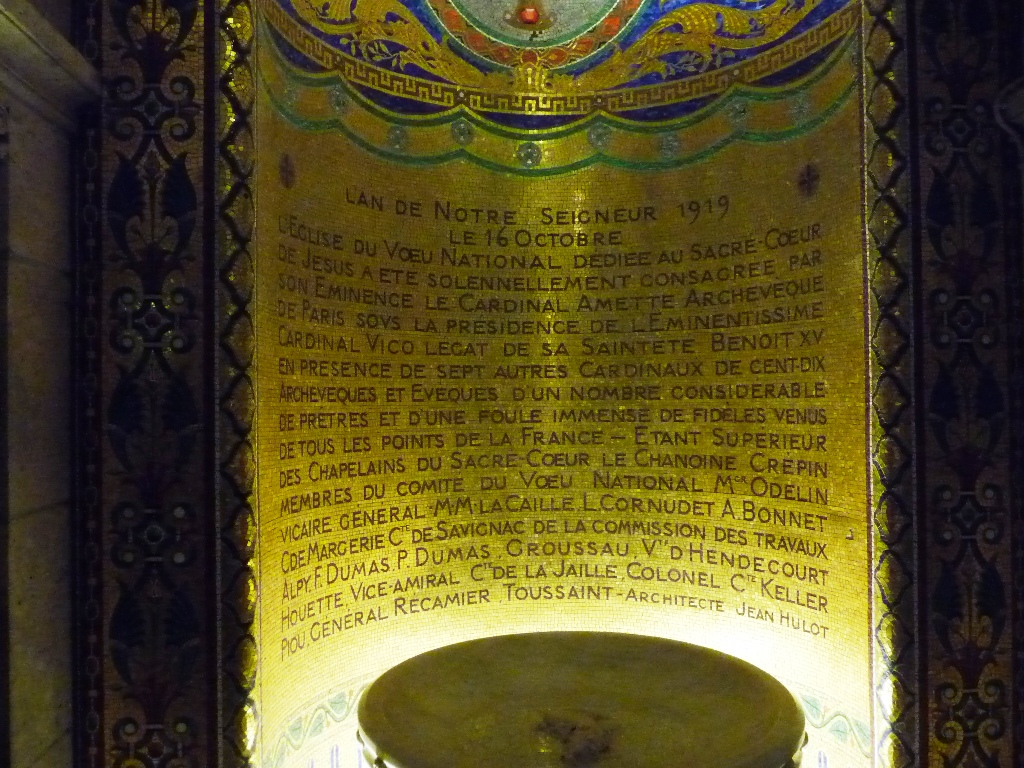 LAN DE NOTRE SEIGNEUR 1919
LE 16 OCTOBRE
L'EGLISE DU VŒU NATIONAL DEDIEE AU SACRE-CŒUR
DE JESUS A ETE SOLENNELLEMENT CONSACREE PAR
SON EMINENCE LE CARDINAL AMETTE ARCHEVEQUE
DE PARIS SOVS LA PRESIDENCE DE L'EMINENTISSIME
CARDINAL VICO LEGAT DE SA SAINTETE BENOIT XV
EN PRESENCE DE SEPT AUTRES CARDINAUX DE CENT-DIX
ARCHEVEQUES ET EVEQUES D'UN NOMBRE CONSIDERABLE
DE PRÊTRES ET D'UNE FOULE IMMENSE DE FIDÈLES VENUS
DE TOUS LES POINTS DE LA FRANCE – ETANT SUPERIEUR
DES CHAPELAINS DU SACRE-CŒUR LE CHANOINE CREPIN
MEMBRES DU COMITE DU VŒU NATIONAL MGR ODELIN
VICAIRE GENERAL - M.M. LA CAILLE, L. CORNUDET A. BONNET
C DE MARGERIE CTE DE SAVIGNAC DE LA COMMISSION DES TRAVAUX
ALPY, F. DUMAS, P. DUMAS, GROUSSAU, VTE D'HENDECOURT
HOUETTE, VICE-AMIRAL CTE DE LA JAILLE, COLONEL CTE KELLER
PIOU, GENERAL RECAMIER, TOUSSAINT - ARCHITECTE JEAN HULOT